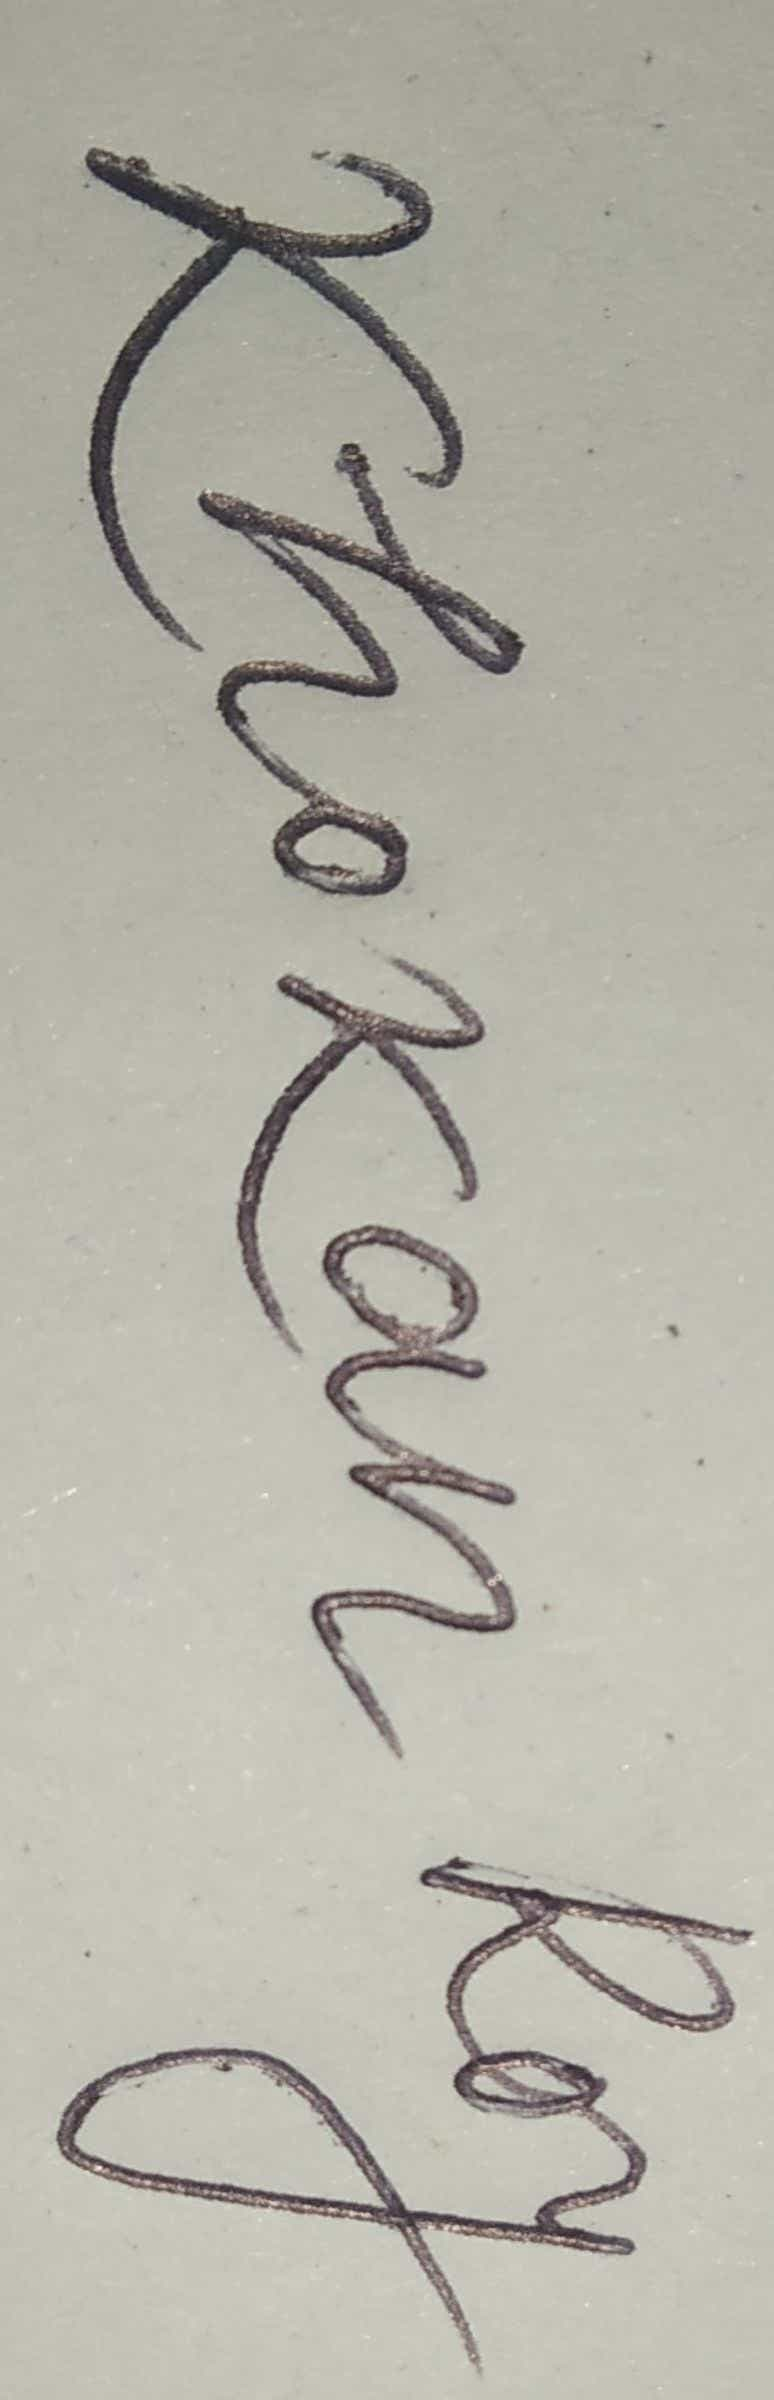 Khokan Roy